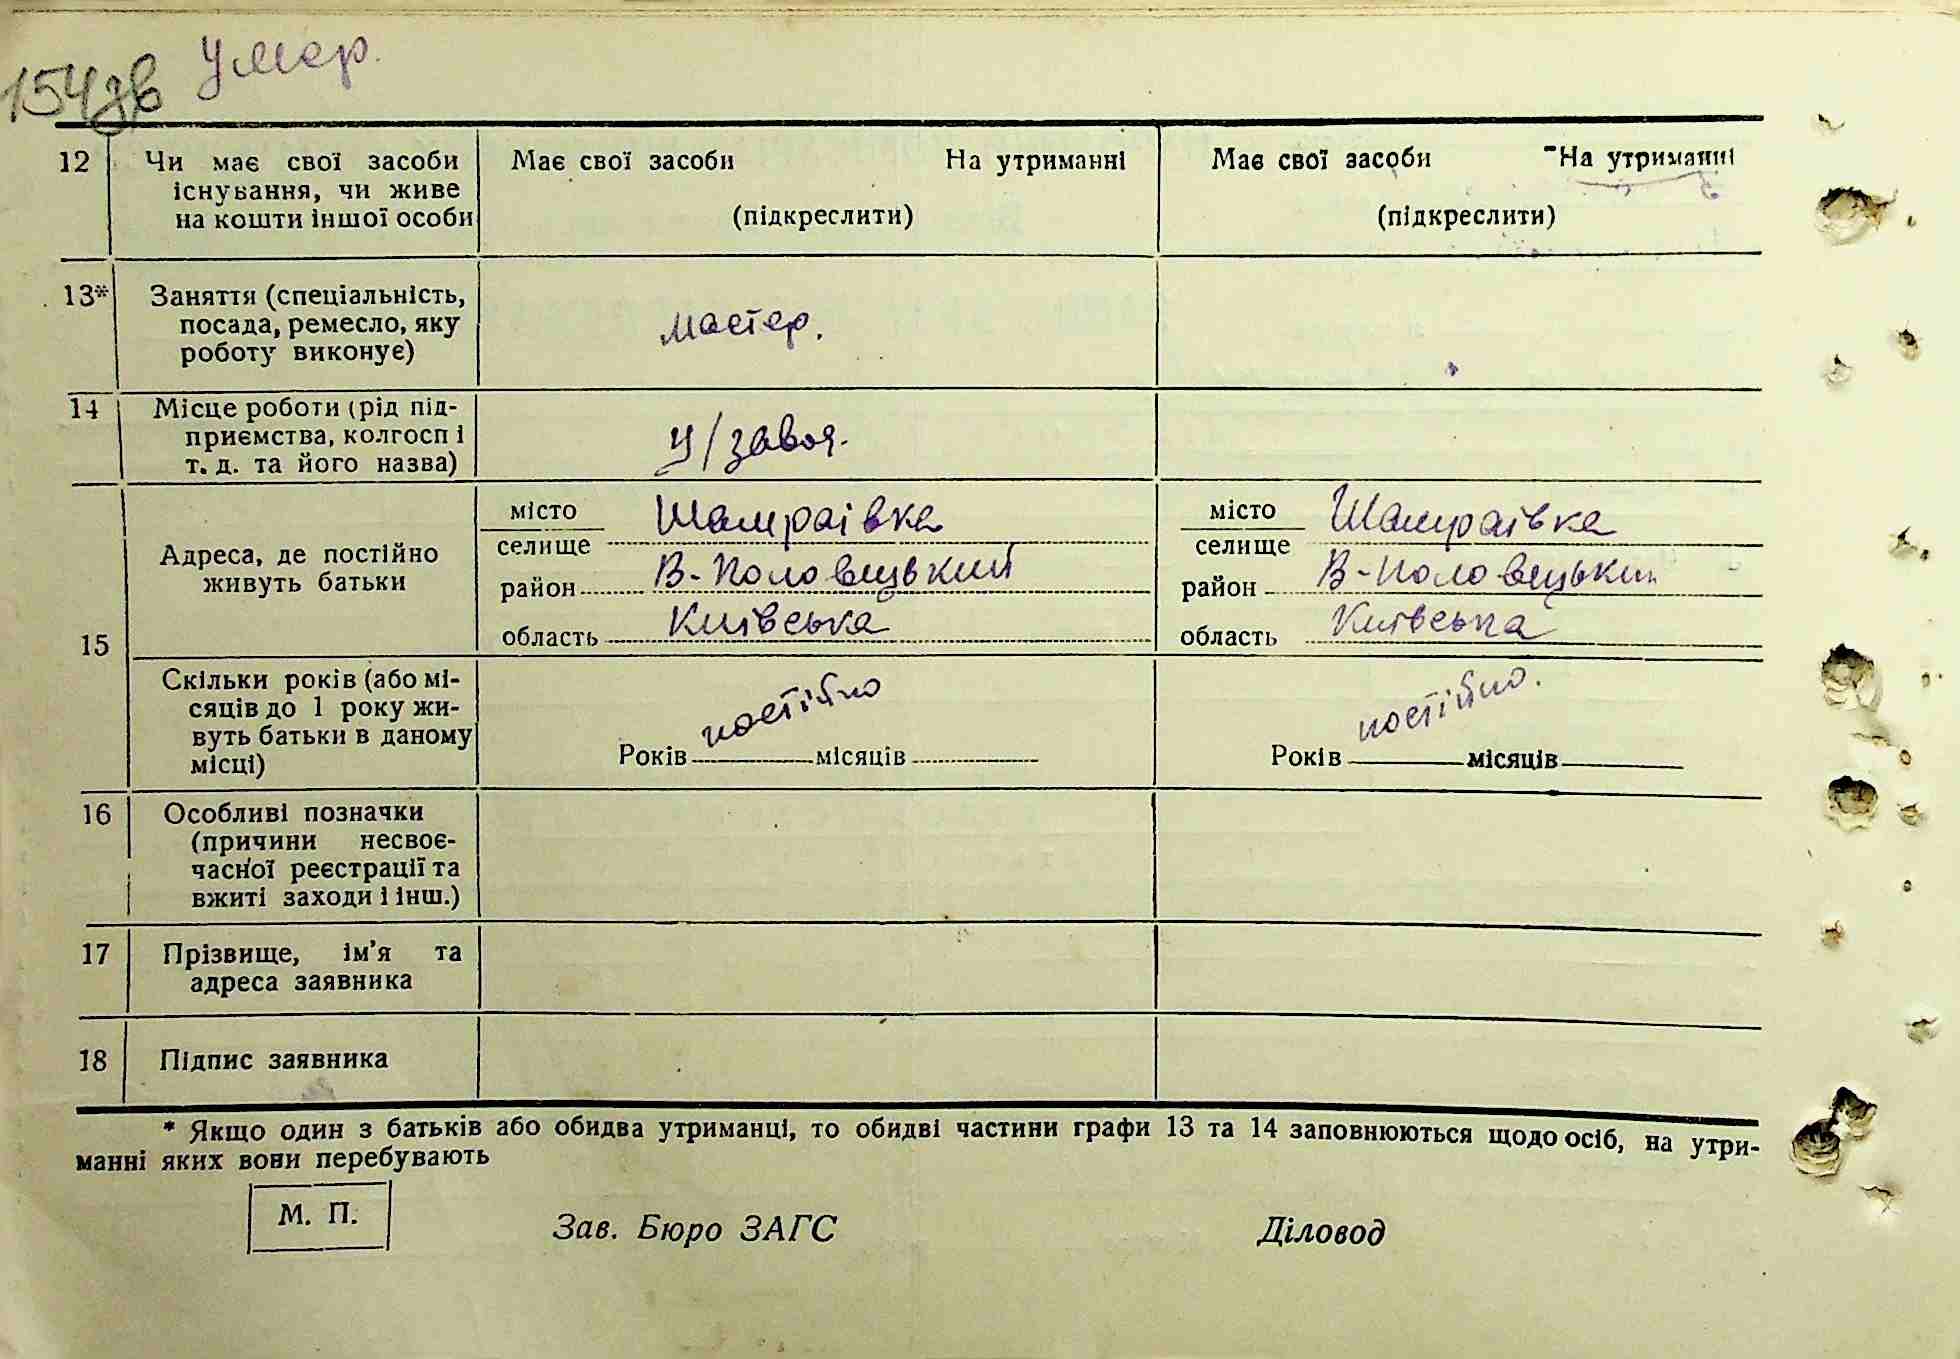 154зв Умер.
12 Чи має свої засоби існування, чи живе на кошти іншої особи
Має свої засоби На утриманні
(підкреслити)
Має свої засоби На утриманні
(підкреслити)
13* Заняття (спеціальність, посада, ремесло, яку роботу виконує)
мастер.
14 Місце роботи (рід підприємства, колгосп і т. д. та його назва)
У/завод.
15
Адреса, де постійно живуть батьки
місто
селище Шамраівка
район В-Половецький
область Київська
місто
селище Шамраівка
район В-Половецький
область Київська
Скільки років (або місяців до 1 року живуть батьки в даному місці)
постійно
Років місяців
постійно.
Років місяців
16 Особливі позначки (причини несвоєчасної реєстрації та вжиті заходи і інш.)
17 Прізвище, ім’я та адреса заявника
18 Підпис заявника
* Якщо один з батьків або обидва утриманці, то обидві частини графи 13 та 14 заповнюються щодо осіб, на утри-
манні яких вони перебувають
М. П.
Зав. Бюро ЗАГС
Діловод